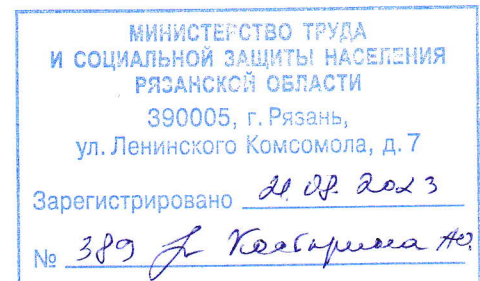 МИНИСТЕРСТВО ТРУДА
И СОЦИАЛЬНОЙ ЗАЩИТЫ НАСЕЛЕНИЯ
РЯЗАНСКОЙ ОБЛАСТИ
390005, г. Рязань,
ул. Ленинского Комсомола, д. 7
Зарегистрировано 2023
№ 389